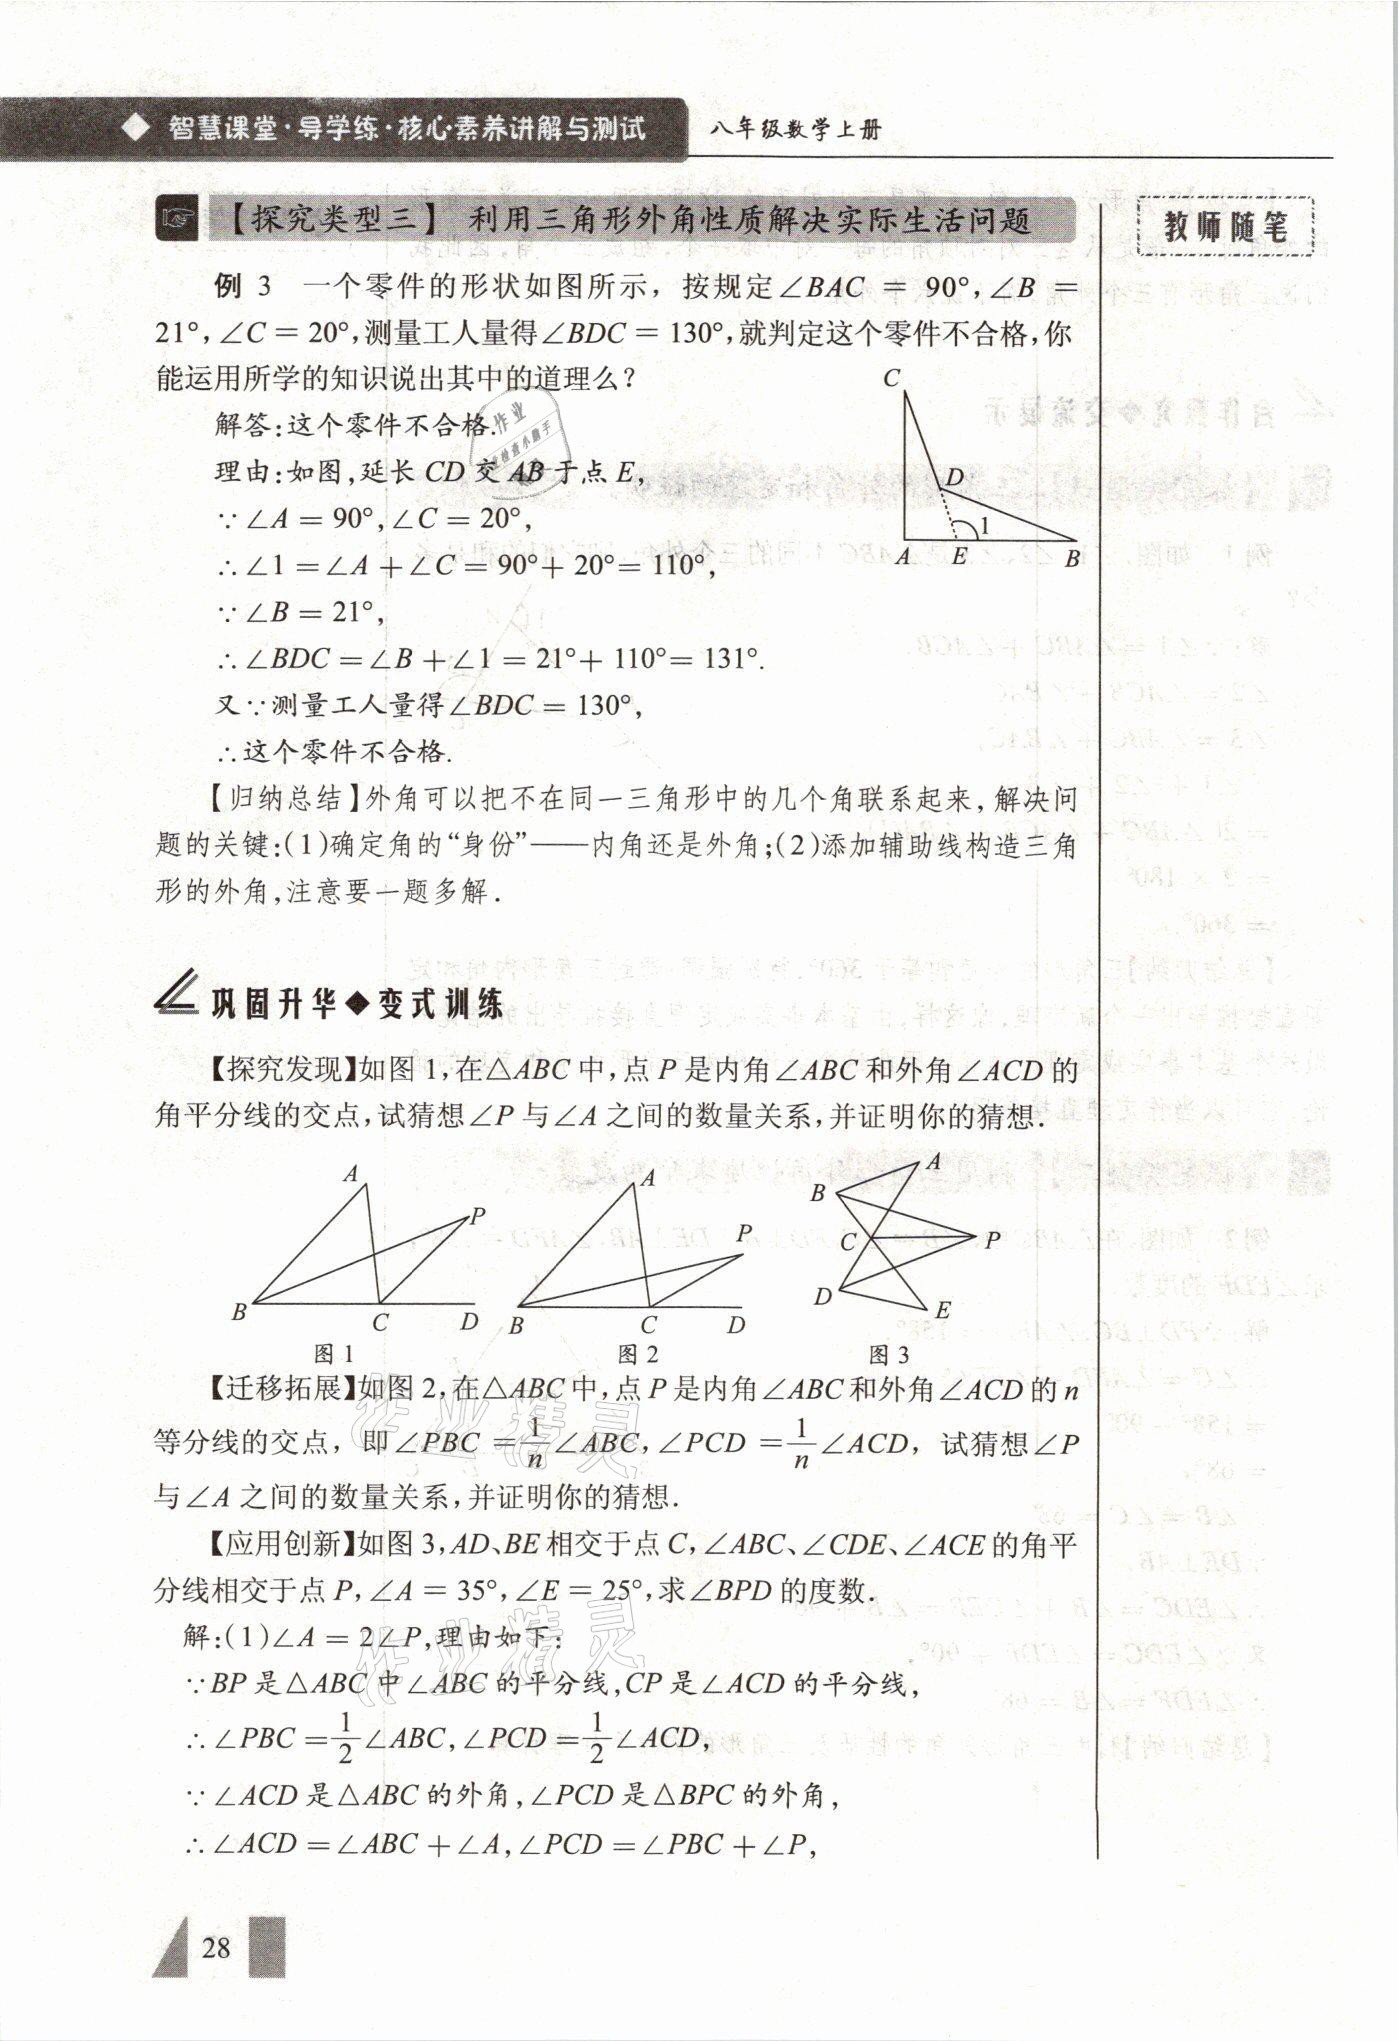 智慧课堂·导学练·核心素养讲解与测试 八年级数学上册
【探究类型三】 利用三角形外角性质解决实际生活问题
教师随笔
例 3 一个零件的形状如图所示，按规定∠BAC = 90°,∠B =
21°,∠C = 20°,测量工人量得∠BDC = 130°,就判定这个零件不合格,你
能运用所学的知识说出其中的道理么?
解答:这个零件不合格.
理由:如图,延长 CD 交 AB 于点 E,
∵∠A = 90°,∠C = 20°,
∴∠1 = ∠A + ∠C = 90° + 20° = 110°,
∵∠B = 21°,
∴∠BDC = ∠B + ∠1 = 21° + 110° = 131°.
又∵测量工人量得∠BDC = 130°,
∴这个零件不合格.
C
D
1
A E B
【归纳总结】外角可以把不在同一三角形中的几个角联系起来,解决问
题的关键:(1)确定角的“身份”——内角还是外角;(2)添加辅助线构造三角
形的外角,注意要一题多解.
巩固升华◆变式训练
【探究发现】如图 1,在△ABC 中,点 P 是内角∠ABC 和外角∠ACD 的
角平分线的交点,试猜想∠P 与∠A 之间的数量关系,并证明你的猜想.
A
P
B C D
图 1
A
P
B C D
图 2
A
B
C P
D
E
图 3
【迁移拓展】如图 2,在△ABC中,点 P 是内角∠ABC 和外角∠ACD 的 n
等分线的交点，即∠PBC = 1/n ∠ABC,∠PCD = 1/n ∠ACD，试猜想∠P
与∠A 之间的数量关系,并证明你的猜想.
【应用创新】如图 3,AD、BE 相交于点 C,∠ABC、∠CDE、∠ACE 的角平
分线相交于点 P,∠A = 35°,∠E = 25°,求∠BPD 的度数.
解:(1)∠A = 2∠P,理由如下:
∵BP 是△ABC 中∠ABC 的平分线,CP 是∠ACD 的平分线,
∴∠PBC = 1/2 ∠ABC,∠PCD = 1/2 ∠ACD,
∵∠ACD 是△ABC 的外角,∠PCD 是△BPC 的外角,
∴∠ACD = ∠ABC + ∠A,∠PCD = ∠PBC + ∠P,
28
作业精灵
作业精灵